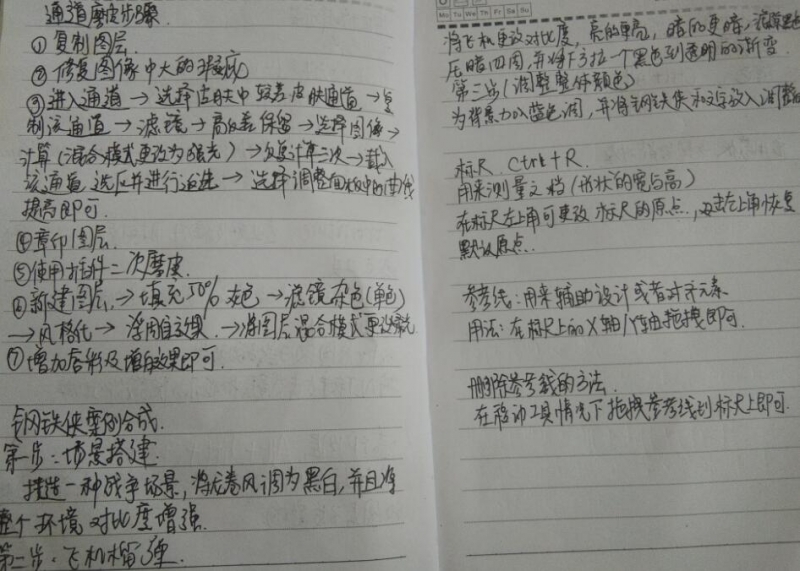 通道磨皮步骤
①复制图层.
②修复图像中大的瑕疵
③进入通道→选择皮肤中较差皮肤通道→复
制该通道→滤镜→高反差保留→选择图像→
计算(混合模式更改为强光)→反复计算三次→载入
该通道选区并进行反选→选择调整面板中的曲线
提高即可.
④章印图层.
⑤使用插件二次磨皮.
⑥新建图层→填充50%灰色→滤镜杂色(单色)
→风格化→浮雕效果.→将图层混合模式更改
⑦增加春彩及增白效果即可.
钢铁侠案例合成.
第一步:场景搭建
搭造一种战争场景,将龙卷风调为黑白,并且将
整个环境对比度增强.
第二步:飞机
将飞机更改对比度,亮的更亮,暗的更暗,
压暗四周,并将下方拉一个黑色到透明的渐变.
第三步(调整整体颜色)
为背景加入蓝色调,并将钢铁侠和文字放入调整
标尺 Ctrl+R
用来测量文档(形状的宽与高)
在标尺左上角可更改标尺的原点,双击左上角恢复
默认原点.
参考线:用来辅助设计或者对齐元素
用法:在标尺上的X轴/Y轴拖拽即可.
删除参考线的方法.
在移动工具情况下拖拽参考线到标尺上即可.
Mo Tu We Th Fr Sa Su